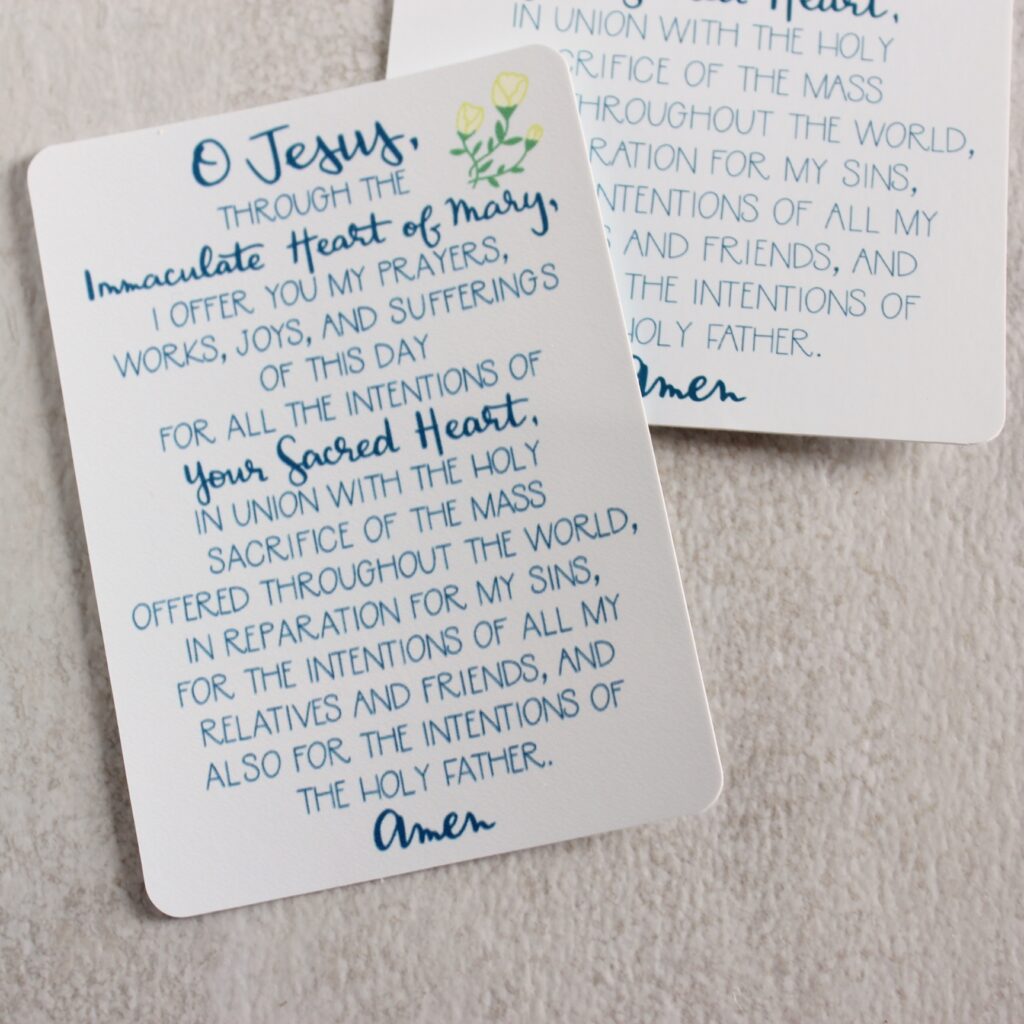 O Jesus,
THROUGH THE
Immaculate Heart of Mary,
I OFFER YOU MY PRAYERS,
WORKS, JOYS, AND SUFFERINGS
OF THIS DAY
FOR ALL THE INTENTIONS OF
your Sacred Heart,
IN UNION WITH THE HOLY
SACRIFICE OF THE MASS
OFFERED THROUGHOUT THE WORLD,
IN REPARATION FOR MY SINS,
FOR THE INTENTIONS OF ALL MY
RELATIVES AND FRIENDS, AND
ALSO FOR THE INTENTIONS OF
THE HOLY FATHER.
Amen
Heart,
IN UNION WITH THE HOLY
OF THE MASS
THROUGHOUT THE WORLD,
FOR MY SINS,
INTENTIONS OF ALL MY
AND FRIENDS, AND
THE INTENTIONS OF
HOLY FATHER.
Amen